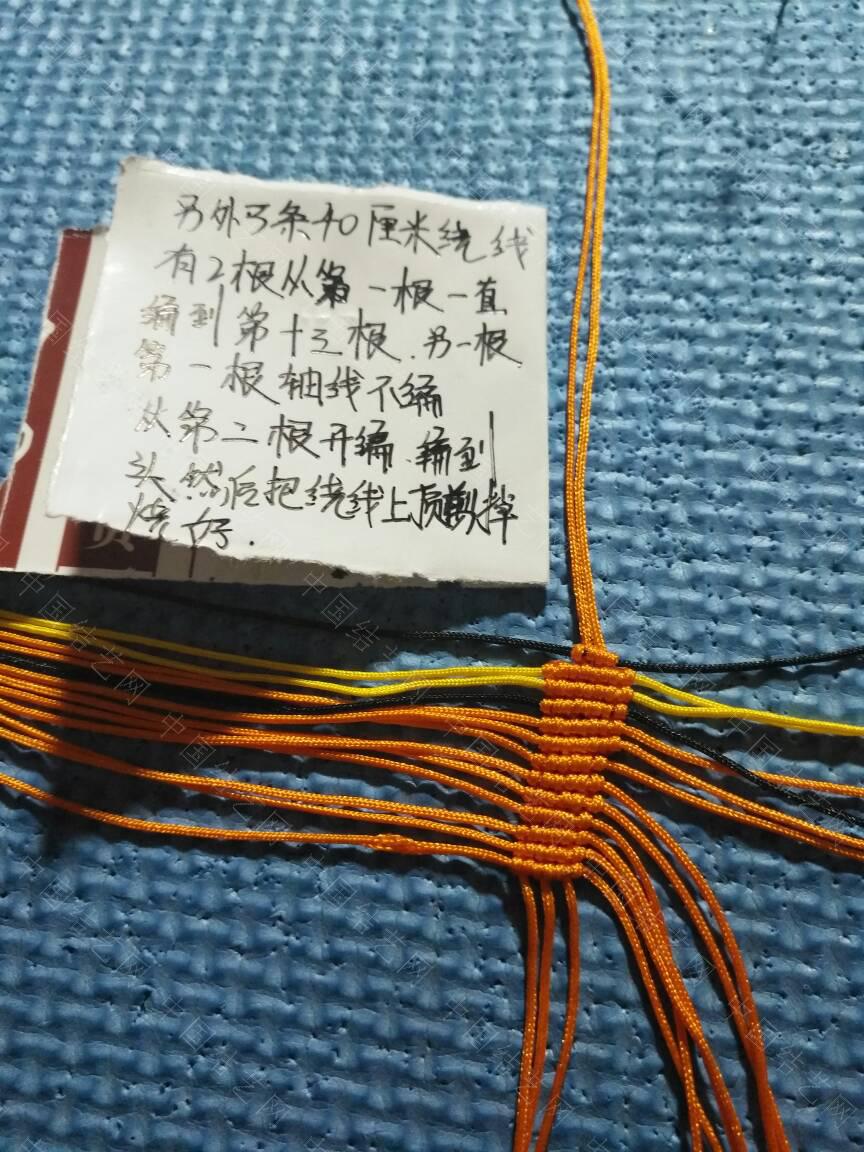 另外3条40厘米绕线
有2根从第一根一直
编到第十三根.另一根
第一根轴线不编
从第二根开编.编到
头然后把绕线上顶剪掉
烧好.
中国结艺网